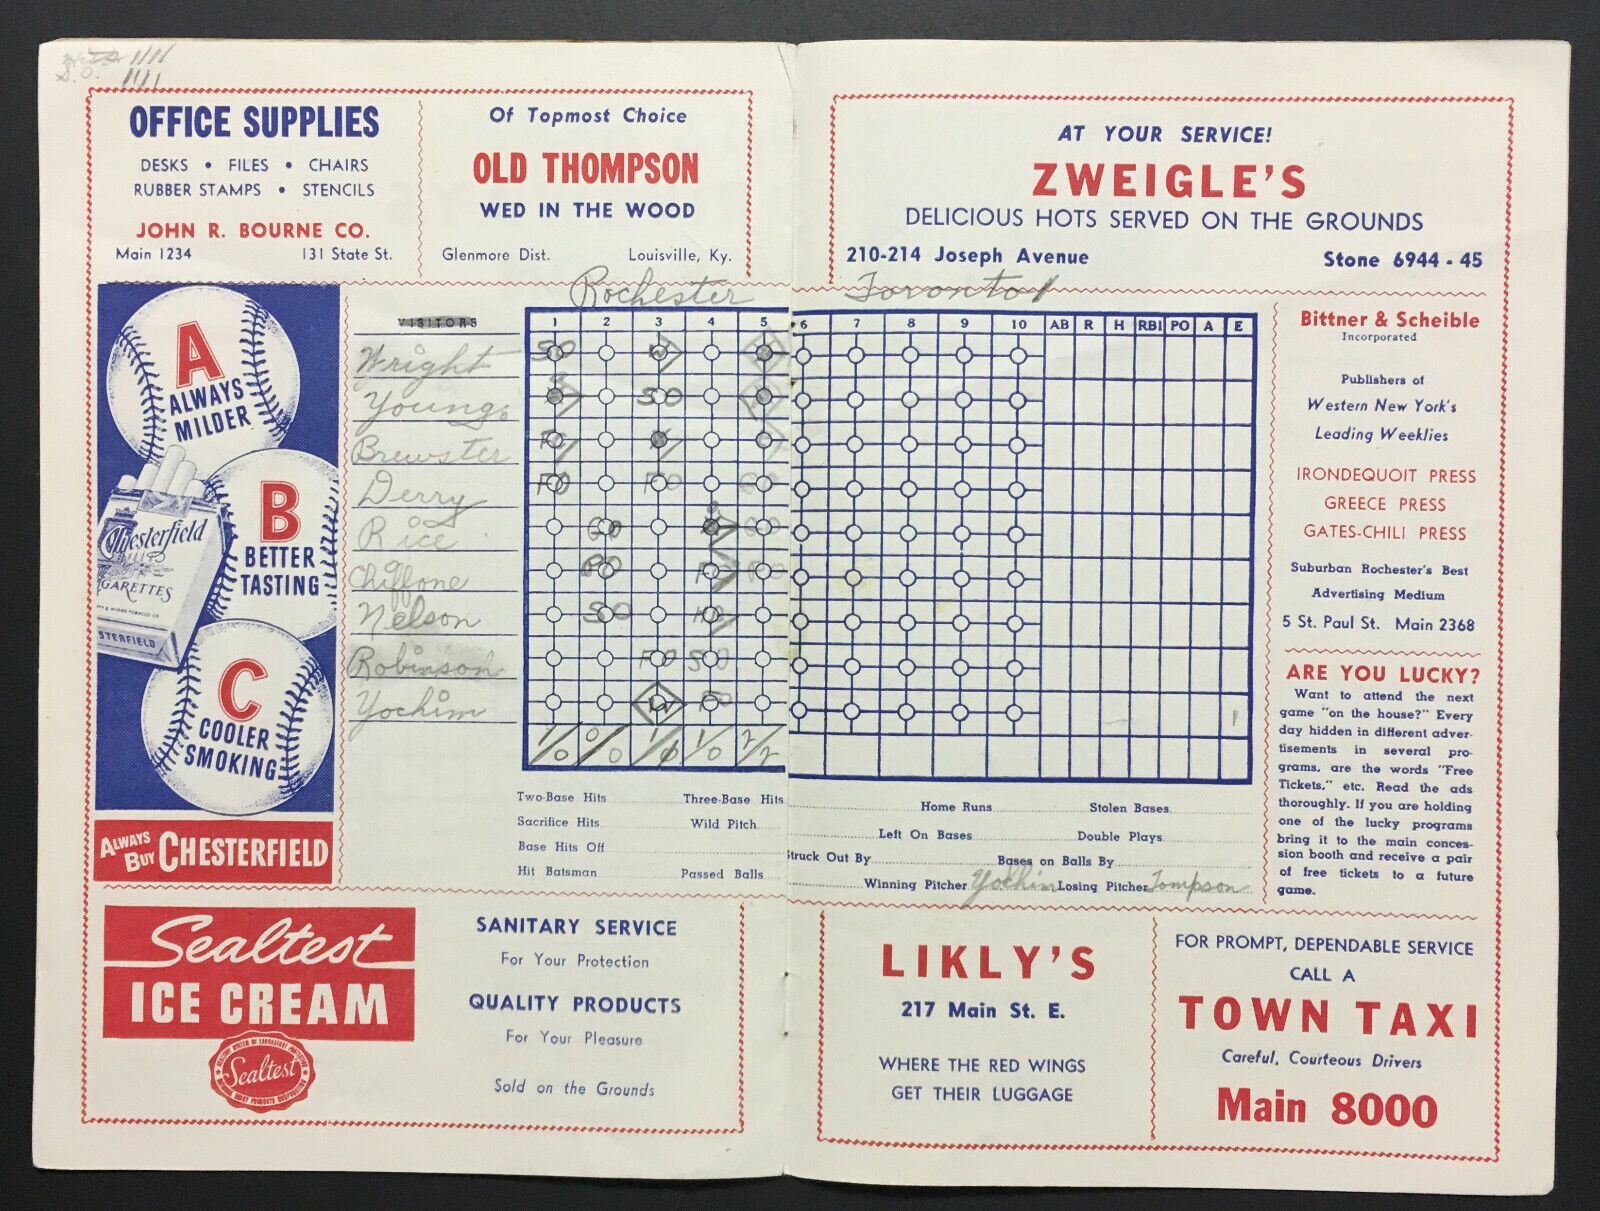 S.O.
OFFICE SUPPLIES
DESKS • FILES • CHAIRS
RUBBER STAMPS • STENCILS
JOHN R. BOURNE CO.
Main 1234 131 State St.
Of Topmost Choice
OLD THOMPSON
WED IN THE WOOD
Glenmore Dist. Louisville, Ky.
AT YOUR SERVICE!
ZWEIGLE'S
DELICIOUS HOTS SERVED ON THE GROUNDS
210-214 Joseph Avenue Stone 6944 - 45
A
ALWAYS
MILDER
B
BETTER
TASTING
C
COOLER
SMOKING
Chesterfield
ALWAYS
BUY CHESTERFIELD
Rochester Toronto
VISITORS 1 2 3 4 5 6 7 8 9 10 AB R H RBI PO A E
Wright SO W
Young SO
Brewster FO
Derry FO FO
Rice GO GO
Chiffone FO
Nelson SO
Robinson FO SO
Yochim W FO 1
1/0 0/0 1/0 1/0 2/2
Two-Base Hits Three-Base Hits Home Runs Stolen Bases
Sacrifice Hits Wild Pitch Left On Bases Double Plays
Base Hits Off Struck Out By Bases on Balls By
Hit Batsman Passed Balls Winning Pitcher Yochim Losing Pitcher Tompson
Bittner & Scheible
Incorporated
Publishers of
Western New York's
Leading Weeklies
IRONDEQUOIT PRESS
GREECE PRESS
GATES-CHILI PRESS
Suburban Rochester's Best
Advertising Medium
5 St. Paul St. Main 2368
ARE YOU LUCKY?
Want to attend the next
game "on the house?" Every
day hidden in different adver-
tisements in several pro-
grams, are the words "Free
Tickets," etc. Read the ads
thoroughly. If you are holding
one of the lucky programs
bring it to the main conces-
sion booth and receive a pair
of free tickets to a future
game.
Sealtest
ICE CREAM
Sealtest
SANITARY SERVICE
For Your Protection
QUALITY PRODUCTS
For Your Pleasure
Sold on the Grounds
LIKLY'S
217 Main St. E.
WHERE THE RED WINGS
GET THEIR LUGGAGE
FOR PROMPT, DEPENDABLE SERVICE
CALL A
TOWN TAXI
Careful, Courteous Drivers
Main 8000